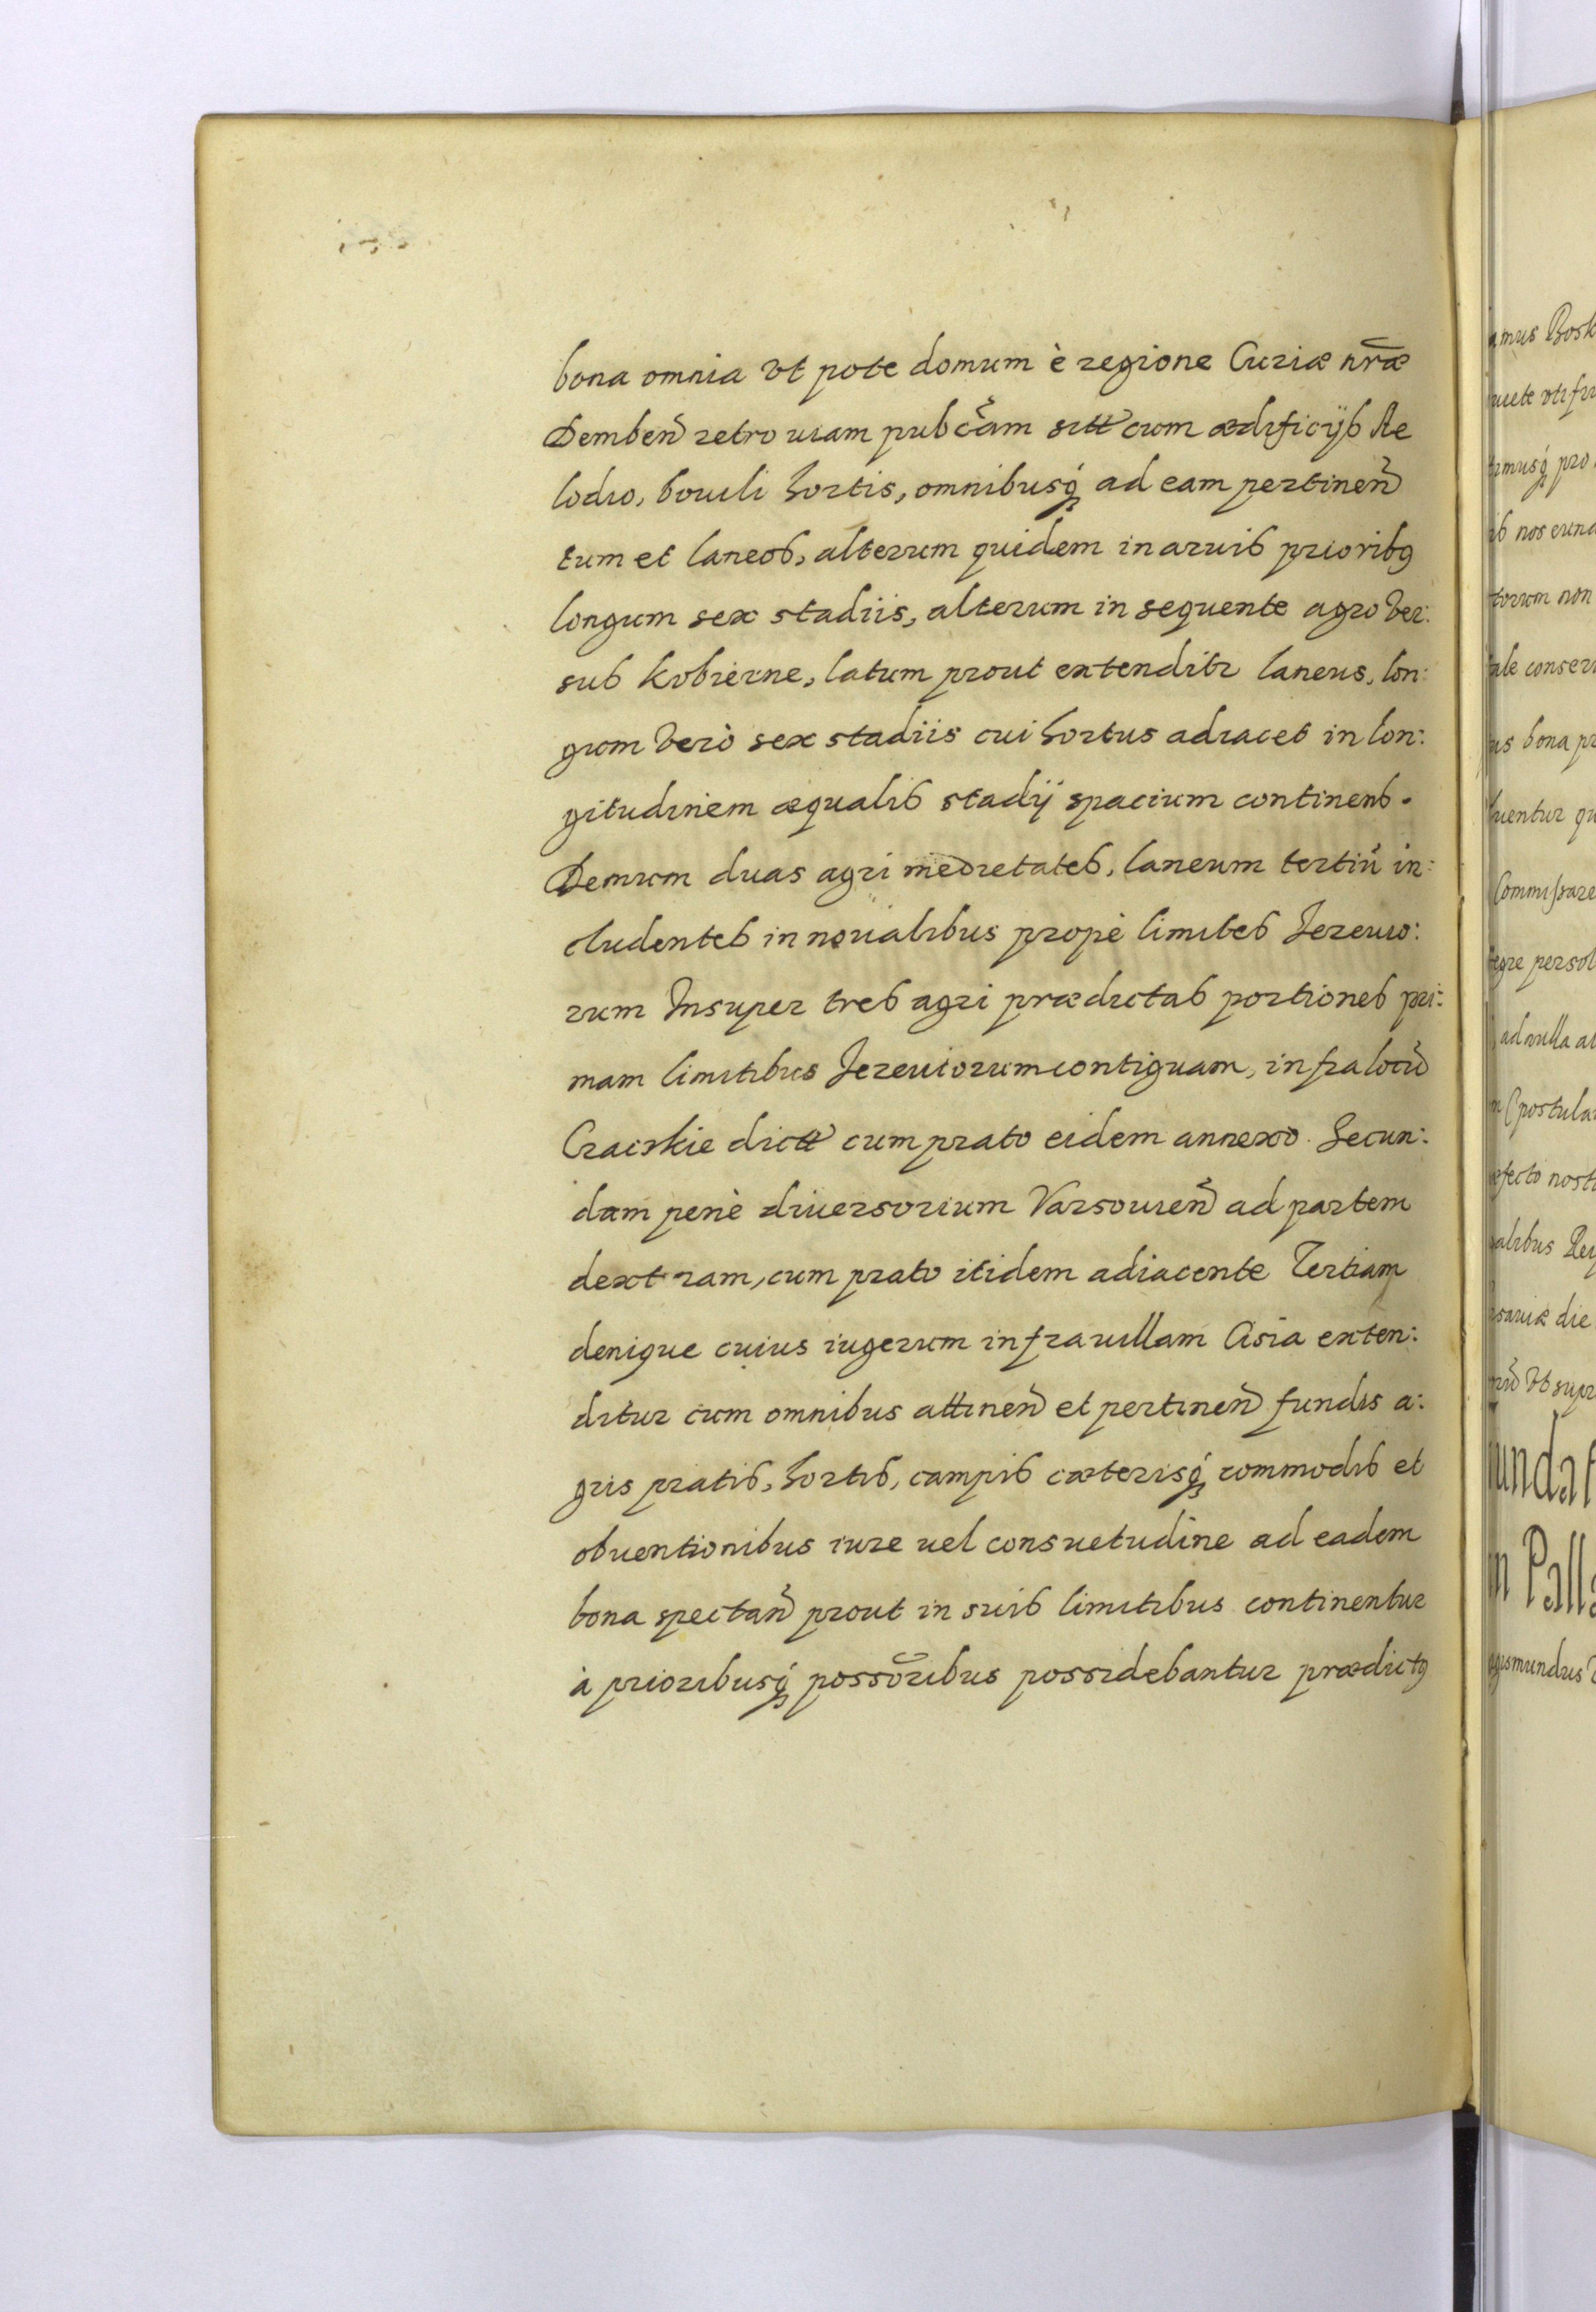 bona omnia vt pote domum è regione Curiæ nr̃æ
Demben̄ retro uiam pubcãm sitt cum ædificijs Ae
lodio, bouili hortis, omnibusq́ʒ ad eam pertinen̄
tum et laneos, alterum quidem in aruis prioribꝰ
longum sex stadiis, alterum in sequente agro Ver:
sus kobierne, latum prout extenditr laneus, lon:
gum Verò sex stadiis cui hortus adiacet in lon:
gitudiniem æqualis stadij spacium continens.
Demum duas agri medietates, laneum tertiũ in:
cludentes in noualibus propè limites Jezeuio:
rum Insuper tres agri prædictas portiones pri:
mam limitibus Jezeuiorum contiguam, infra locũ
Cracskie dictt cum prato eidem annexo. Secun:
dam penè diuersorium Varsouien̄ ad partem
dextram, cum prato itidem adiacente Tertiam
denique cuius iugerum infra uillam Cisia exten:
ditur cum omnibus attinen̄ et pertinen̄ fundis a:
gris pratis, hortis, campis cæterisq́ʒ commodis et
obuentionibus iure uel consuetudine ad eadem
bona spectan̄ prout in suis limitibus continentur
à prioribusq́ʒ possõribus possidebantur prædictꝰ